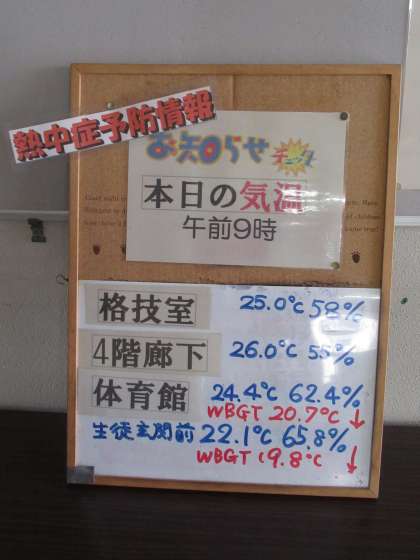 熱中症予防情報
お知らせ
チェック!
本日の気温
午前9時
格技室 25.0℃ 58%
4階廊下 26.0℃ 55%
体育館 24.4℃ 62.4%
WBGT 20.7℃ ↓
生徒玄関前 22.1℃ 65.8%
WBGT 19.8℃ ↓